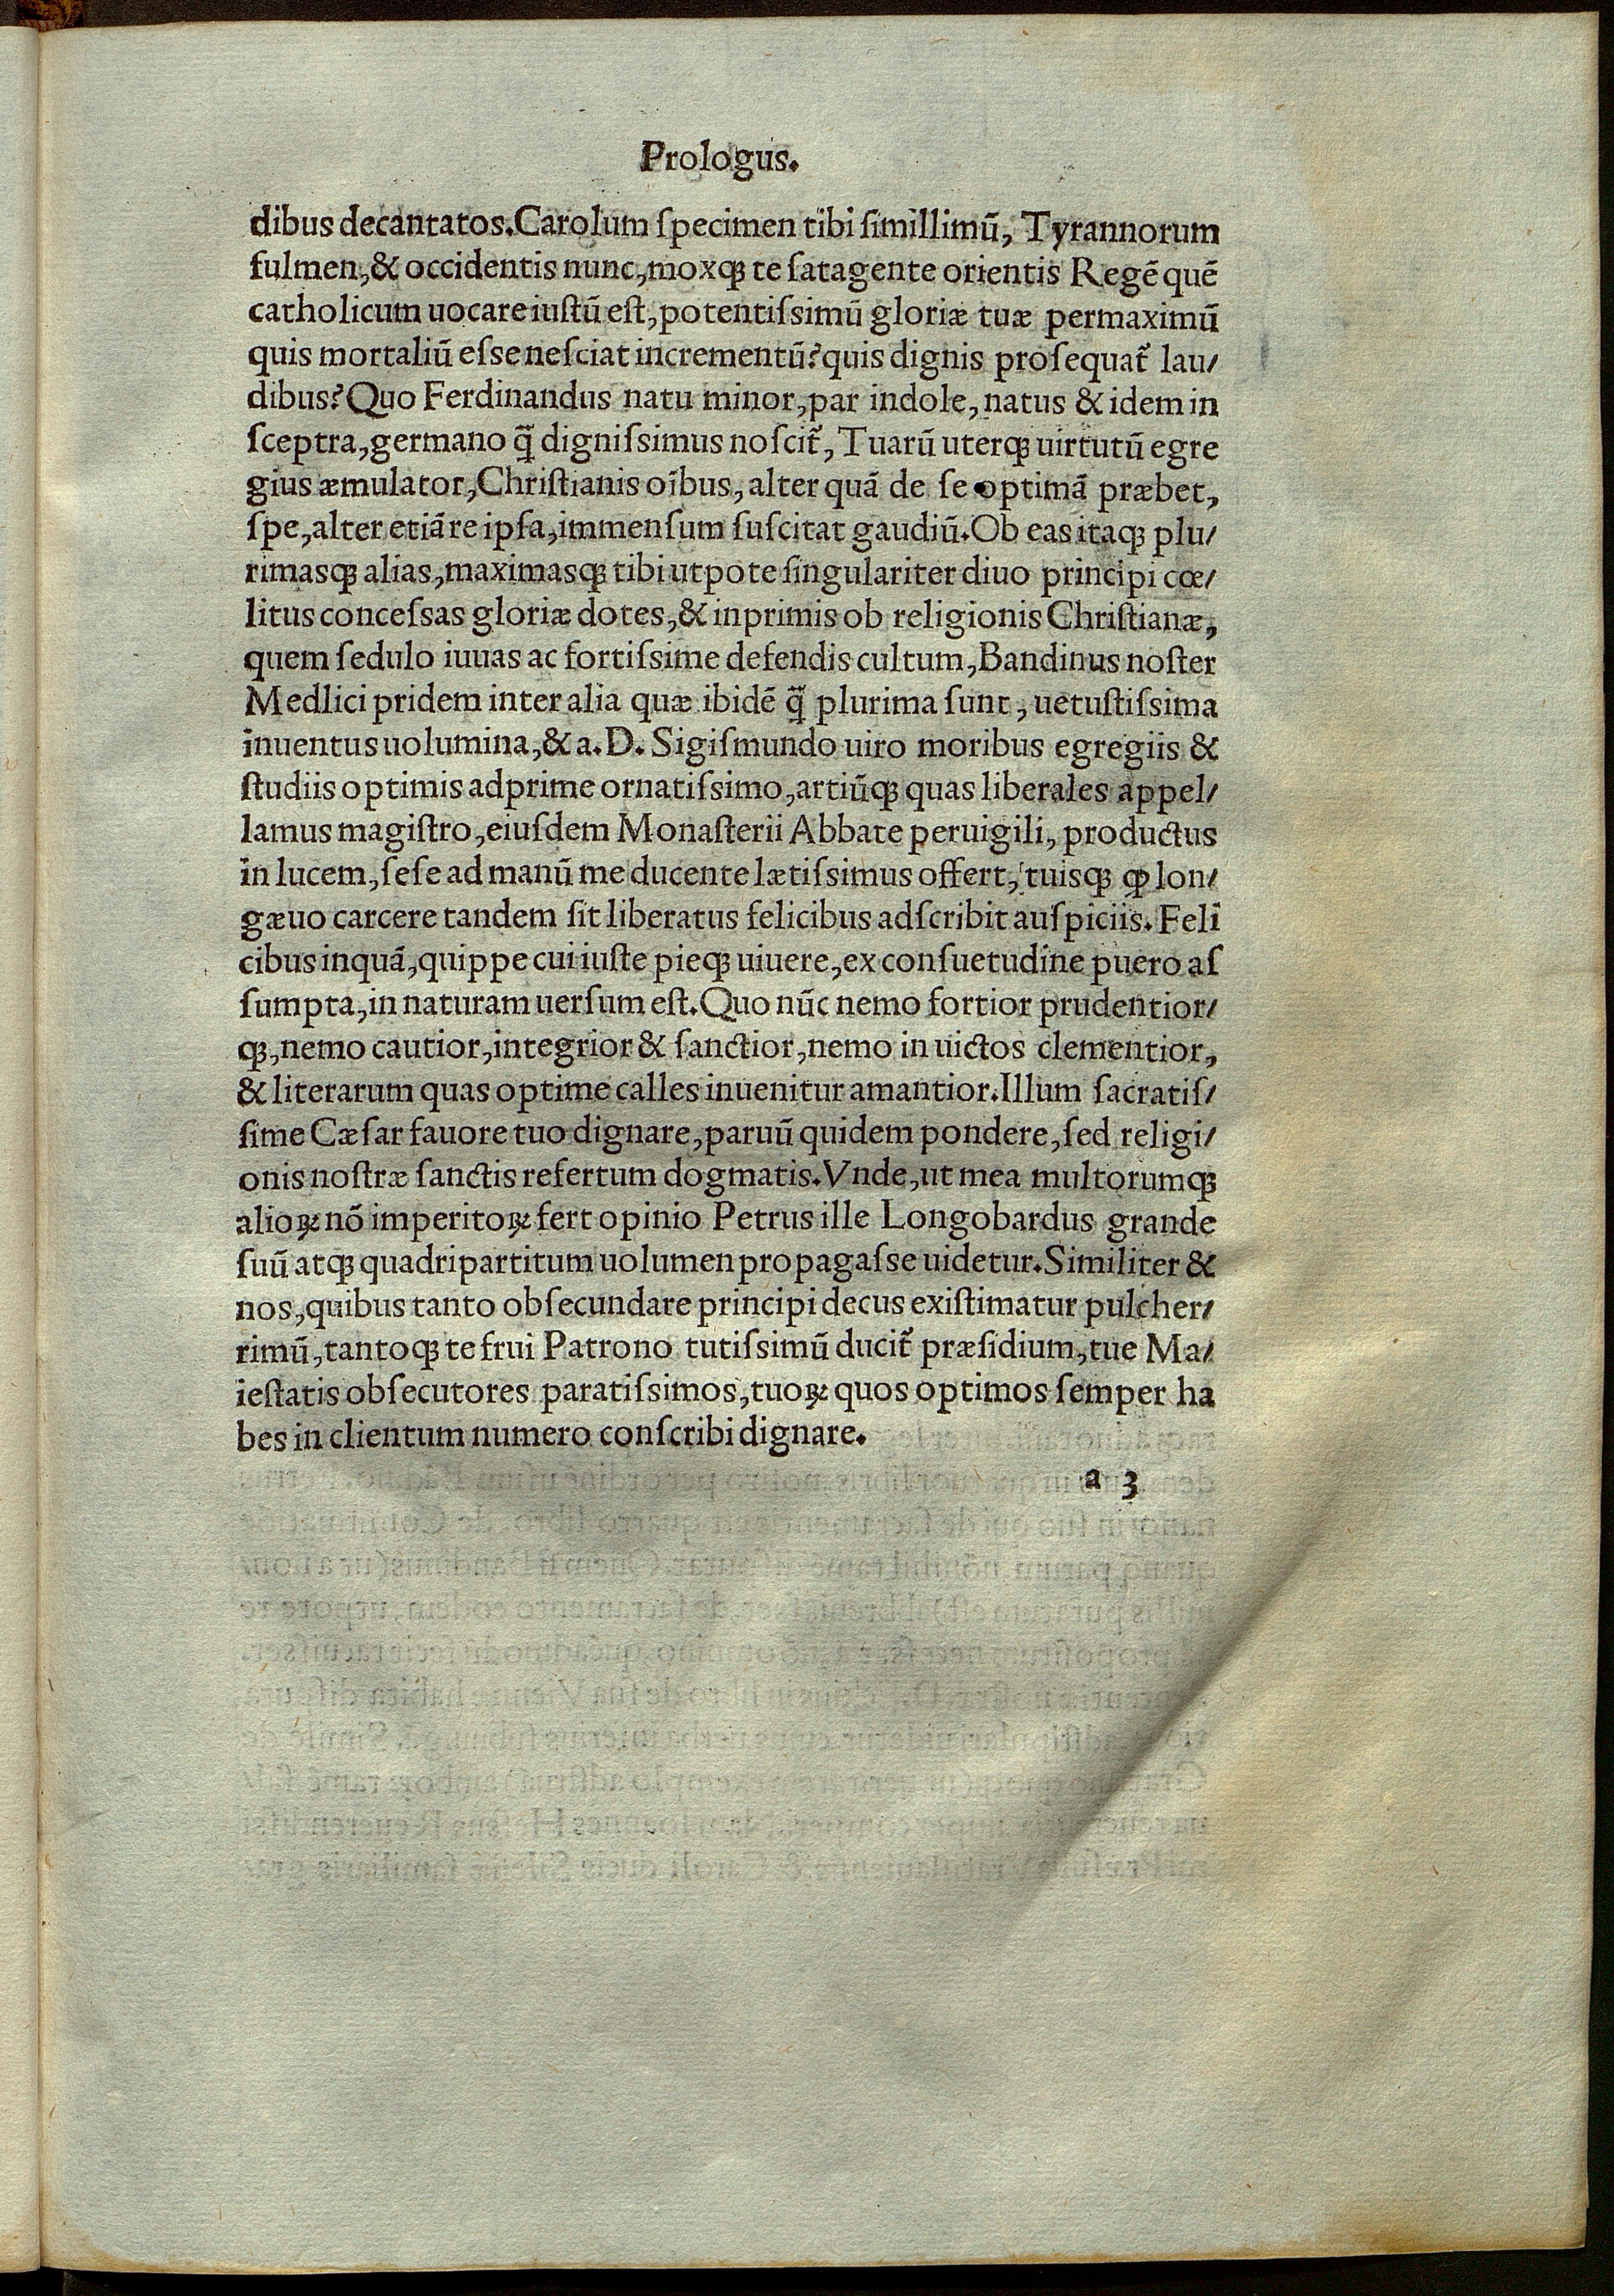 Prologus.
dibus decantatos.Carolum ſpecimen tibi ſimillimũ, Tyrannorum
fulmen,& occidentis nunc,moxqꝫ te ſatagente orientis Regẽ quẽ
catholicum uocare iuſtũ eſt,potentiſsimũ gloriæ tuæ permaximũ
quis mortaliũ eſse neſciat incrementũ?quis dignis proſequat᷑ lau/
dibus?Quo Ferdinandus natu minor,par indole,natus & idem in
ſceptra,germano q̃ digniſsimus noſcit᷑, Tuarũ uterqꝫ uirtutũ egre
gius æmulator,Chriſtianis oĩbus,alter quã de ſe optimã præbet,
ſpe,alter etiã re ipſa,immenſum ſuſcitat gaudiũ.Ob eas itaqꝫ plu/
rimasqꝫ alias,maximasqꝫ tibi utpote ſingulariter diuo principi cœ/
litus conceſsas gloriæ dotes,& inprimis ob religionis Chriſtianæ,
quem ſedulo iuuas ac fortiſsime defendis cultum,Bandinus noſter
Medlici pridem inter alia quæ ibidẽ q̃ plurima ſunt, uetuſtiſsima
inuentus uolumina,& a.D. Sigiſmundo uiro moribus egregiis &
ſtudiis optimis adprime ornatiſsimo,artiũqꝫ quas liberales appel/
lamus magiſtro,eiuſdem Monaſterii Abbate peruigili, productus
in lucem,ſeſe ad manũ me ducente lætiſsimus offert, tuisqꝫ ꝙ lon/
gæuo carcere tandem ſit liberatus felicibus adſcribit auſpiciis. Feli
cibus inquã,quippe cui iuſte pieqꝫ uiuere,ex conſuetudine puero aſ
ſumpta,in naturam uerſum eſt.Quo nũc nemo fortior prudentior/
qꝫ,nemo cautior,integrior & ſanctior,nemo in uictos clementior,
& literarum quas optime calles inuenitur amantior.Illum ſacratiſ/
ſime Cæſar fauore tuo dignare,paruũ quidem pondere,ſed religi/
onis noſtræ ſanctis refertum dogmatis.Vnde,ut mea multorumqꝫ
alioꝝ nõ imperitoꝝ fert opinio Petrus ille Longobardus grande
ſuũ atqꝫ quadripartitum uolumen propagaſse uidetur.Similiter &
nos,quibus tanto obſecundare principi decus exiſtimatur pulcher/
rimũ,tantoqꝫ te frui Patrono tutiſsimũ ducit᷑ præſidium,tue Ma/
ieſtatis obſecutores paratiſsimos,tuoꝝ quos optimos ſemper ha
bes in clientum numero conſcribi dignare.
a 3